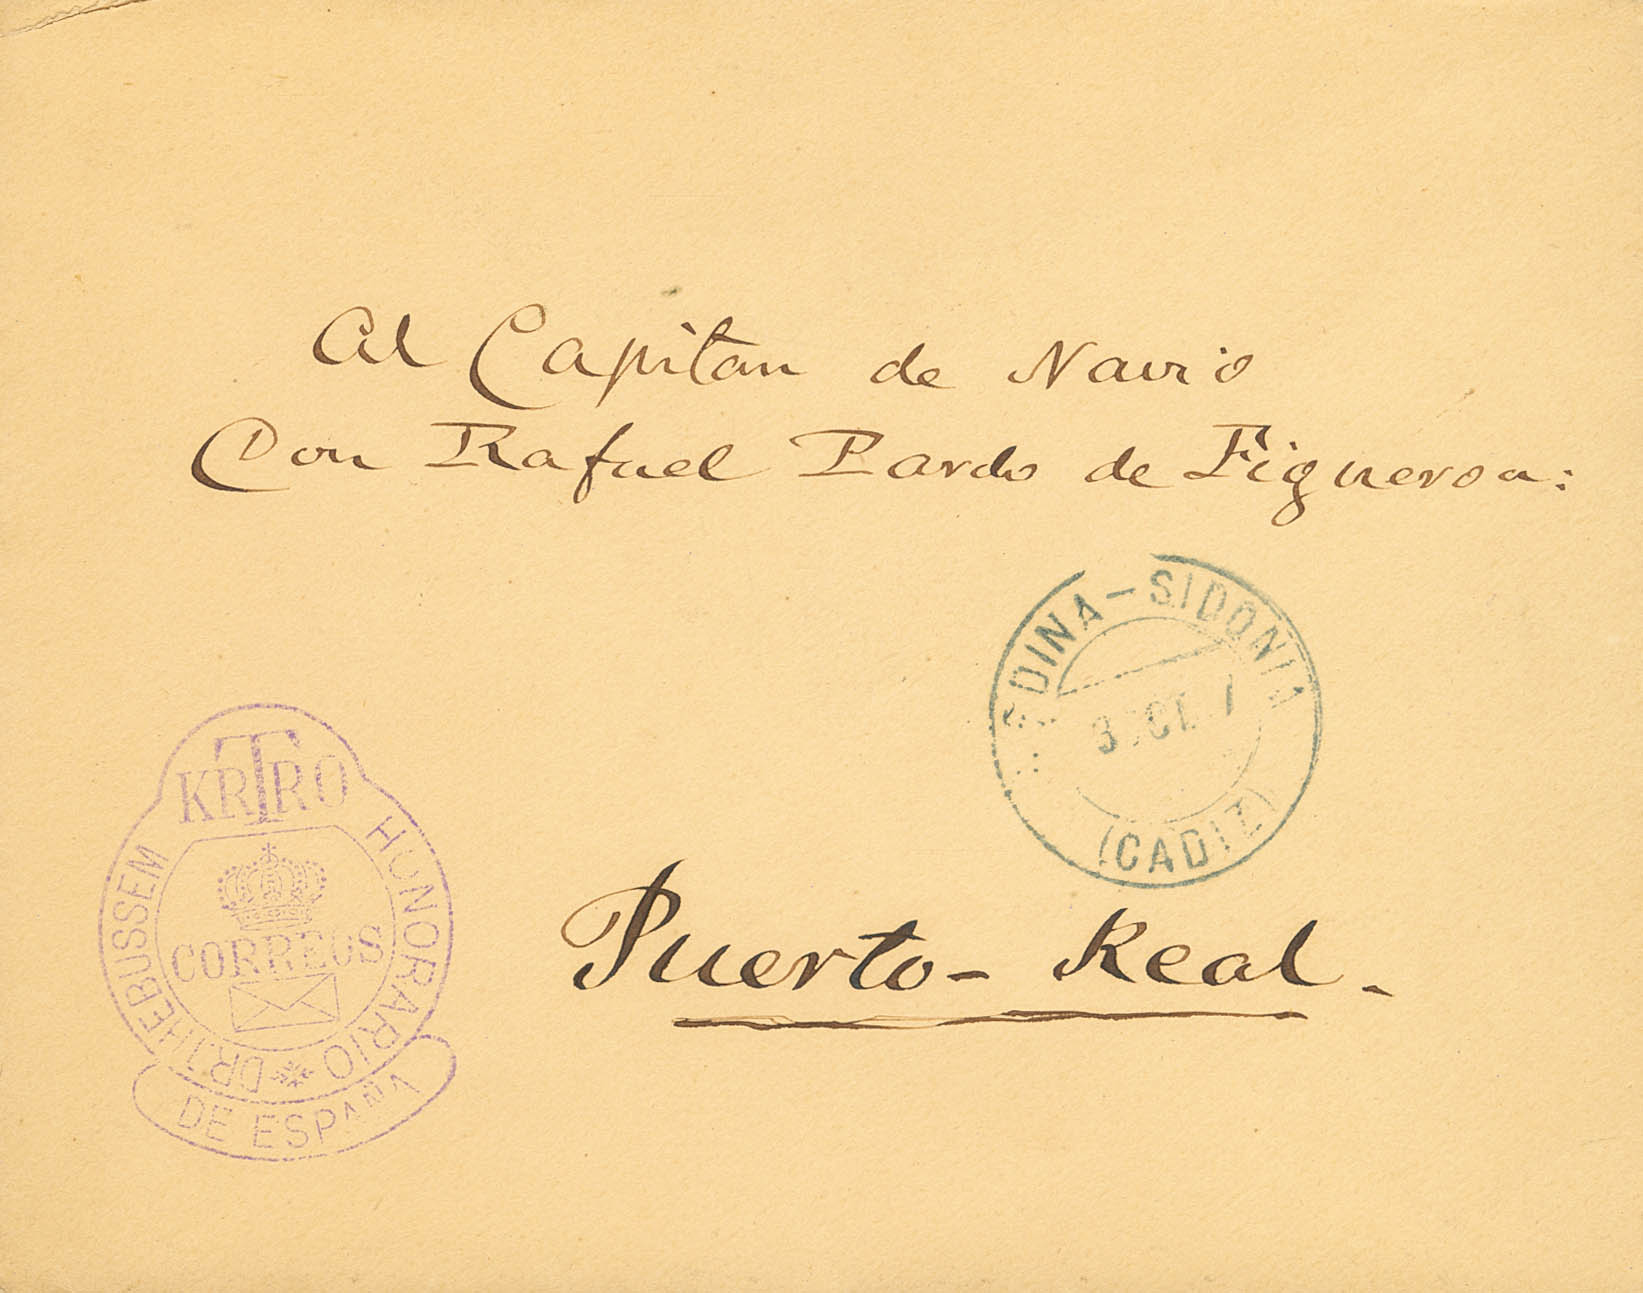 Al Capitan de Navio
Don Rafael Pardo de Figueroa:
DINA-SIDONIA
(CADIZ)
KRTRO
HONORARIO
DR. THEBUSSEM
CORREOS
DE ESPAÑA
Puerto-Real.